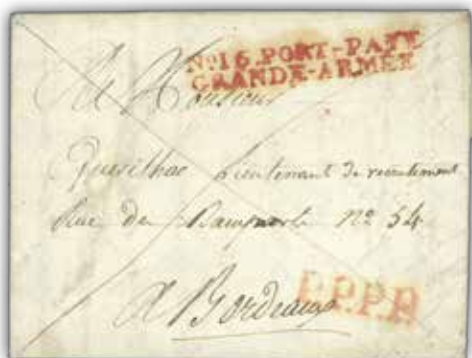 No. 16. PORT-PAYÉ
GRANDE-ARMÉE
A Monsieur
Quesilhac Lieutenant de recrutement
Rue des Ramparts No 54
P.P.P.P.
A Bordeaux